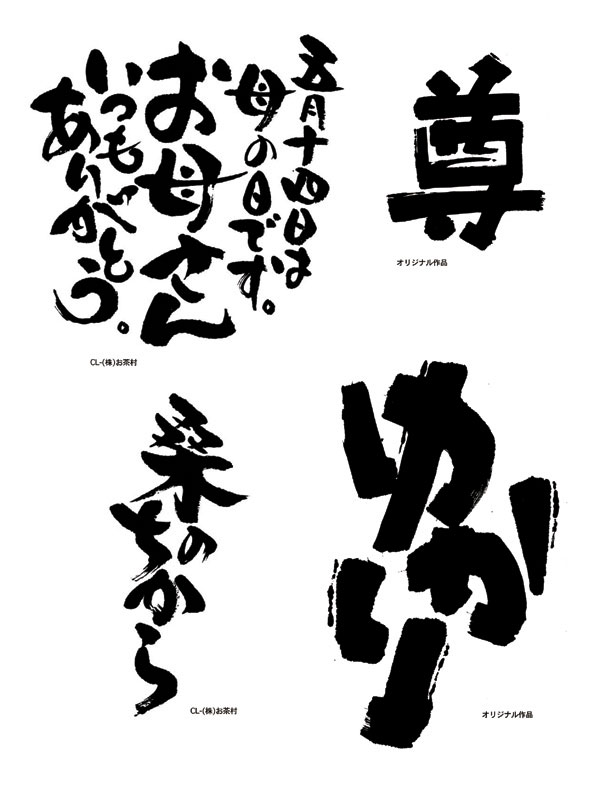 五月十四日は
母の日です。
お母さん
いつも
ありがとう。
CL-(株)お茶村
尊
オリジナル作品
桑の
ちから
CL-(株)お茶村
ゆかり
オリジナル作品